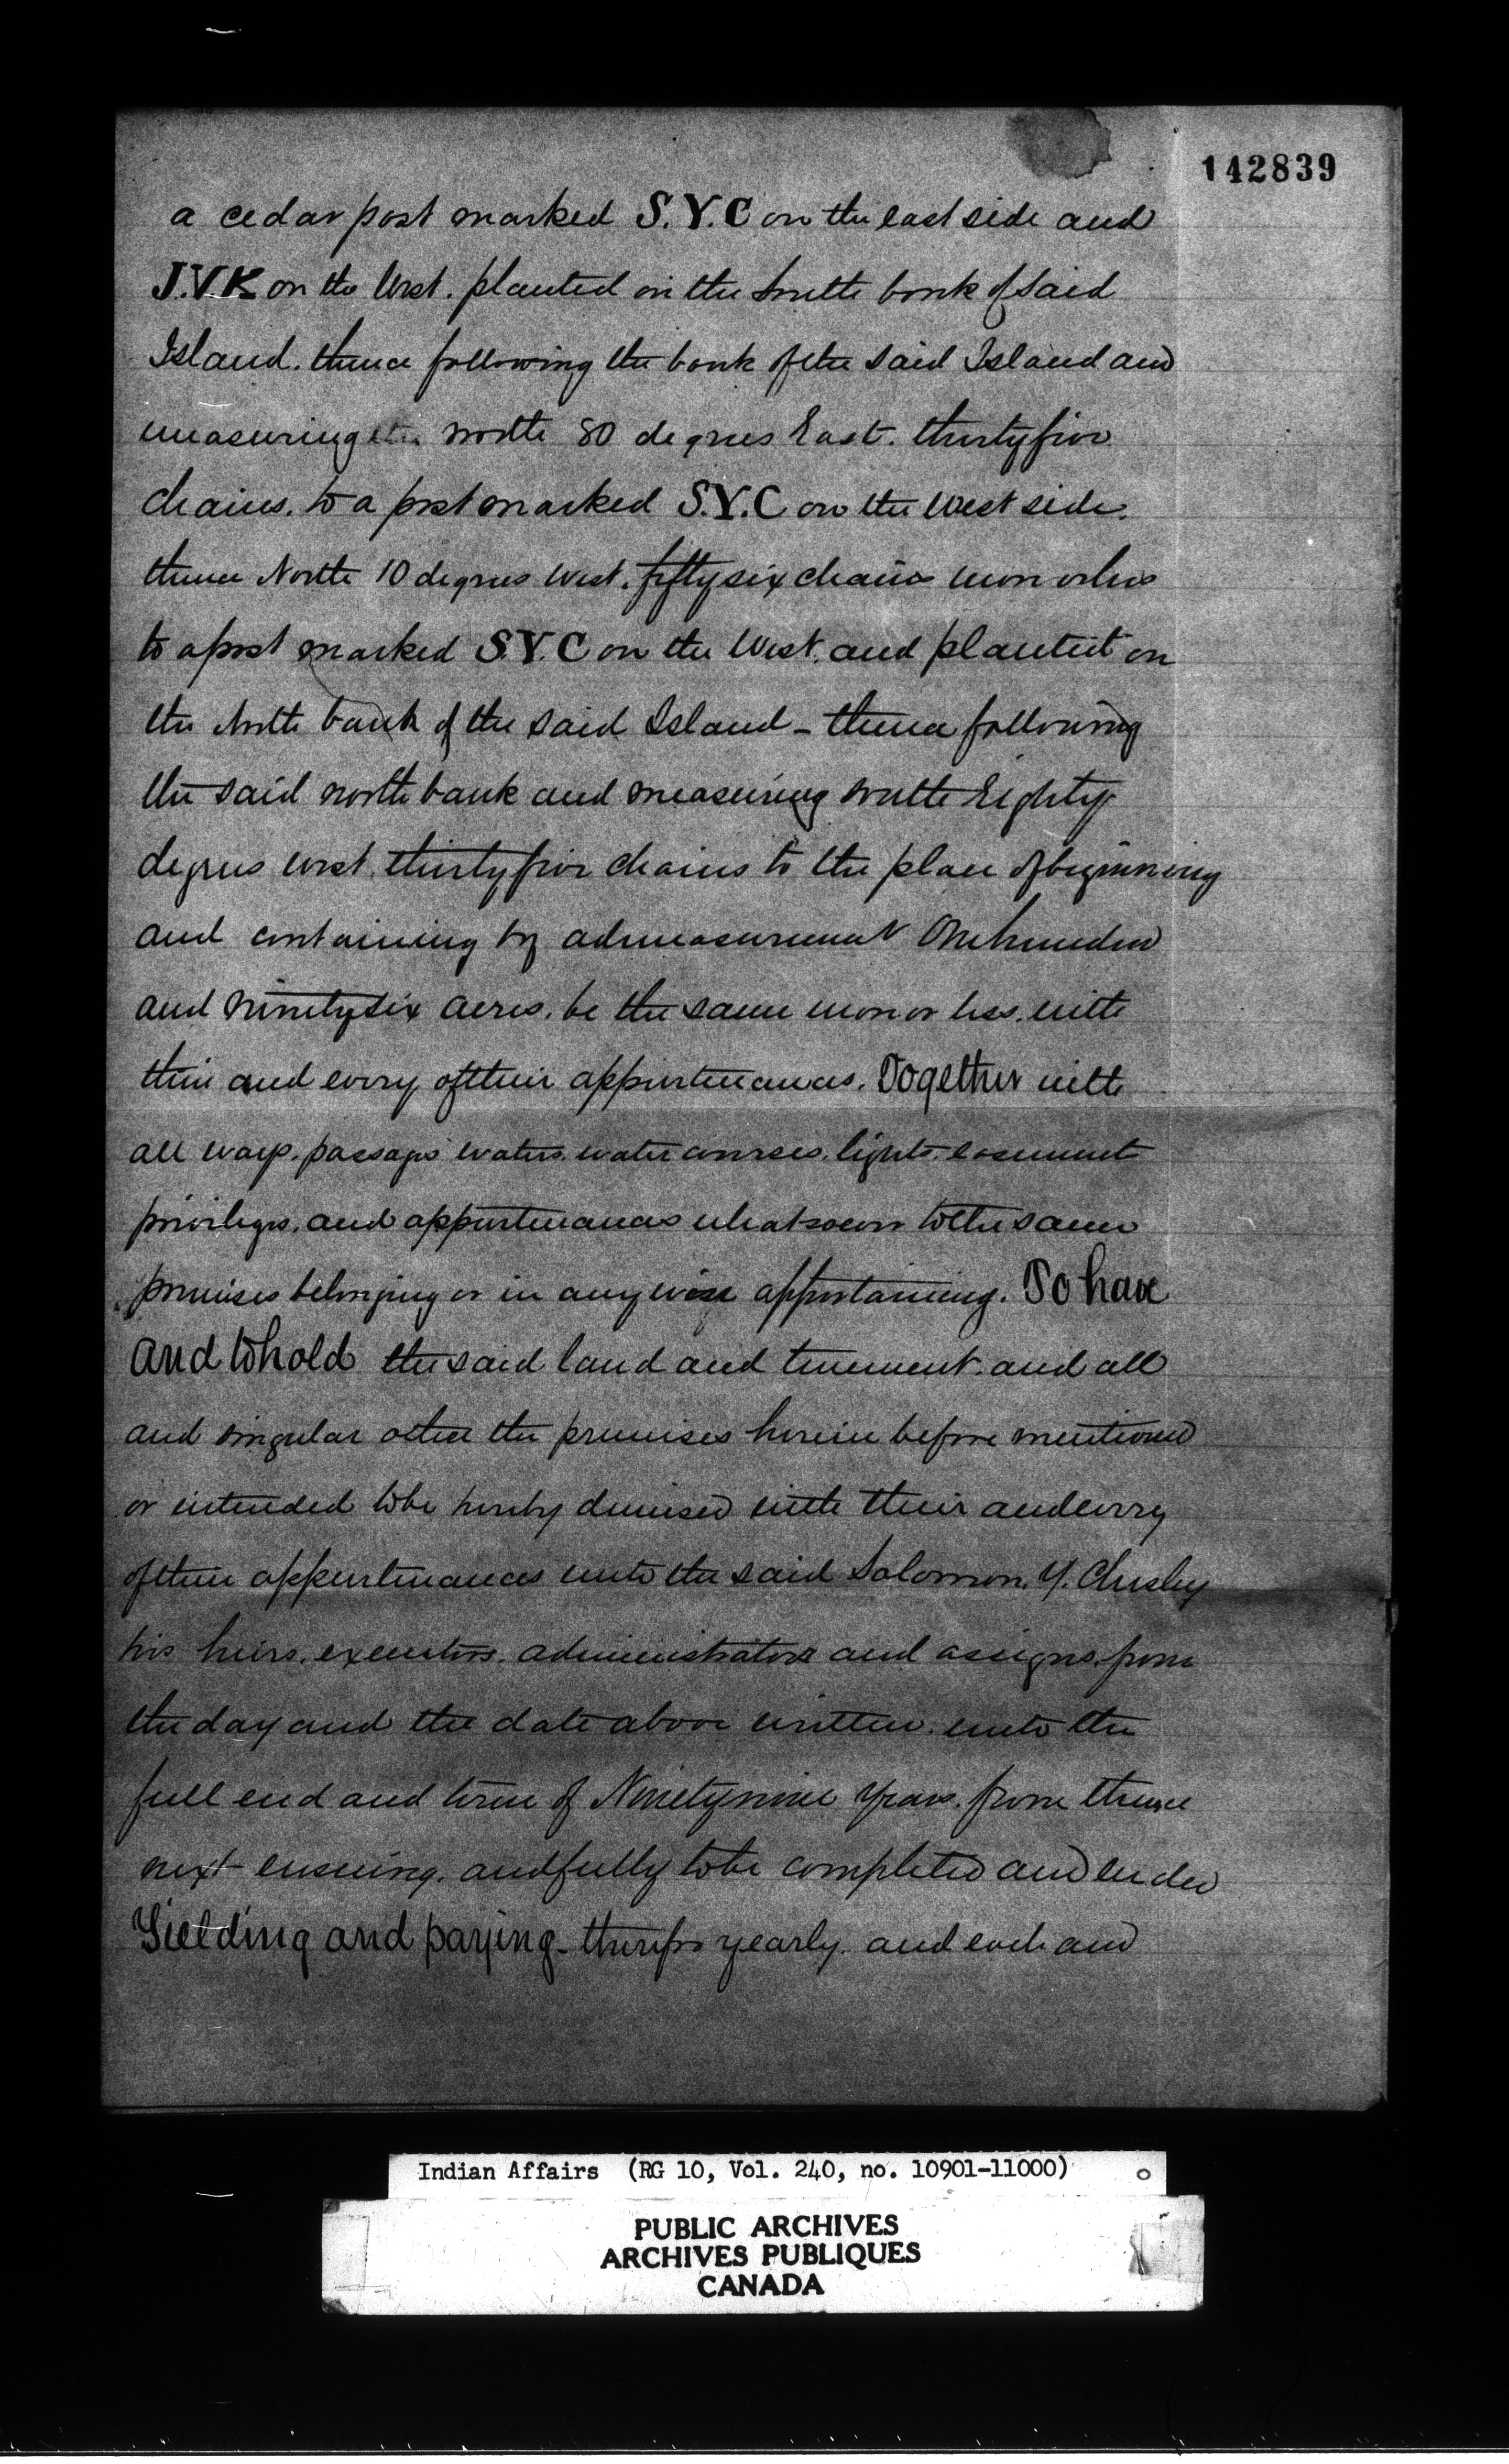 142839
a cedar post marked S.Y.C on the east side and
J.V.K on the West. planted on the South bank of said
Island. thence following the bank of the said Island and
measuring north 80 degrees East. thirty five
chains. to a post marked S.Y.C on the West side.
thence North 10 degrees West. fifty six chains more or less
to a post marked S.Y.C on the West. and planted on
the North bank of the said Island - thence following
the said north bank and measuring south Eighty
degrees west thirty five chains to the place of beginning
and containing by admeasurement One hundred
and ninety six acres. be the same more or less. with
their and every of their appurtenances. Together with
all ways. passages waters. water courses. lights. easements
privileges. and appurtenances whatsoever to the same
premises belonging or in any wise appertaining. To have
and to hold the said land and tenement. and all
and singular other the premises herein before mentioned
or intended to be hereby demised with their and every
of their appurtenances unto the said Solomon. Y. Chesley
his heirs. executors. administrators and assigns. from
the day and the date above written. unto the
full end and term of Ninety nine years. from thence
next ensuing. and fully to be completed and ended
Yielding and paying - therefor yearly. and each and
Indian Affairs (RG 10, Vol. 240, no. 10901-11000)
PUBLIC ARCHIVES
ARCHIVES PUBLIQUES
CANADA